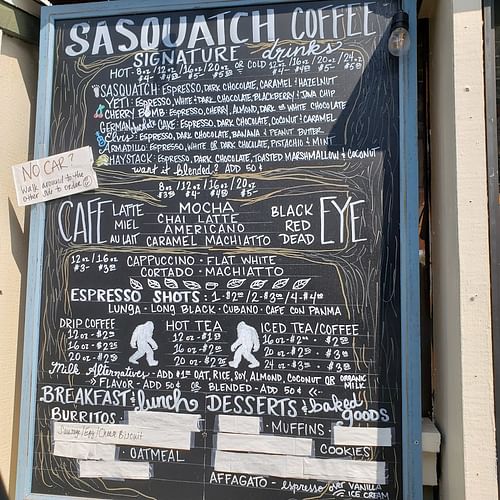 SASQUATCH COFFEE
SIGNATURE drinks
HOT- 8oz/12oz/16oz/20oz OR COLD 12oz/16oz/20oz/24oz
SASQUATCH: ESPRESSO, DARK CHOCOLATE, CARAMEL & HAZELNUT
YETI: ESPRESSO, WHITE & DARK CHOCOLATE, BLACKBERRY & JAVA CHIP
CHERRY BOMB: ESPRESSO, CHERRY, ALMOND, DARK OR WHITE CHOCOLATE
GERMAN CAKE: ESPRESSO, DARK CHOCOLATE, COCONUT & CARAMEL
Elvis: ESPRESSO, DARK CHOCOLATE, BANANA & PEANUT BUTTER
ARMADILLO: ESPRESSO, WHITE OR DARK CHOCLATE, PISTACHIO & MINT
HAYSTACK: ESPRESSO, DARK CHOCOLATE, TOASTED MARSHMALLOW & COCONUT
want it blended? ADD 50¢
NO CAR?
Walk around to the
other side to order
8oz/12oz/16oz/20oz
CAFE LATTE MOCHA BLACK EYE
MIEL CHAI LATTE RED
AU LAIT AMERICANO DEAD
CARAMEL MACHIATTO
12oz/16oz CAPPUCCINO · FLAT WHITE
CORTADO · MACHIATTO
ESPRESSO SHOTS: 1-$2/2-$3/4-$4
LUNGA · LONG BLACK · CUBANO · CAFE CON PANNA
DRIP COFFEE HOT TEA ICED TEA/COFFEE
12oz-$2 12oz-$2 16oz-$2
16oz-$2.25 16oz-$2 20oz-$3
20oz-$2 20oz-$2.75 24oz-$3
Milk Alternatives- ADD $1 OAT, RICE, SOY, ALMOND, COCONUT OR ORGANIC MILK
FLAVOR-ADD 50¢ OR BLENDED-ADD 50¢
BREAKFAST & lunch DESSERTS & baked goods
BURRITOS · · MUFFINS ·
Sausage/Egg/Cheese Biscuit
· OATMEAL COOKIES
AFFAGATO - espresso over VANILLA ICE CREAM